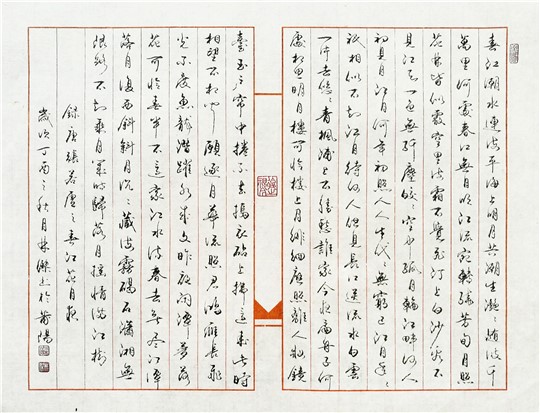 春江潮水連海平海上明月共潮生灧々隨波千
萬里何處春江無月明江流宛轉繞芳甸月照
花林皆似霰空里流霜不覺飛汀上白沙看不
見江天一色無纖塵皎々空中孤月輪江畔何人
初見月江月何年初照人人生代々無窮已江月年々
祇相似不知江月待何人但見長江送流水白雲
一片去悠々青楓浦上不勝愁誰家今夜扁舟子何
處相思明月樓可憐樓上月徘徊應照離人妝鏡
臺玉戶簾中捲不去搗衣砧上拂還來此時
相望不相聞願逐月華流照君鴻雁長飛
光不度魚龍潛躍水成文昨夜閑潭夢落
花可憐春半不還家江水流春去盡江潭
落月復西斜斜月沉々藏海霧碣石瀟湘無
限路不知乘月幾時歸落月搖情滿江樹
錄唐張若虛之春江花月夜
歲次丁酉之秋月林傑於莆陽